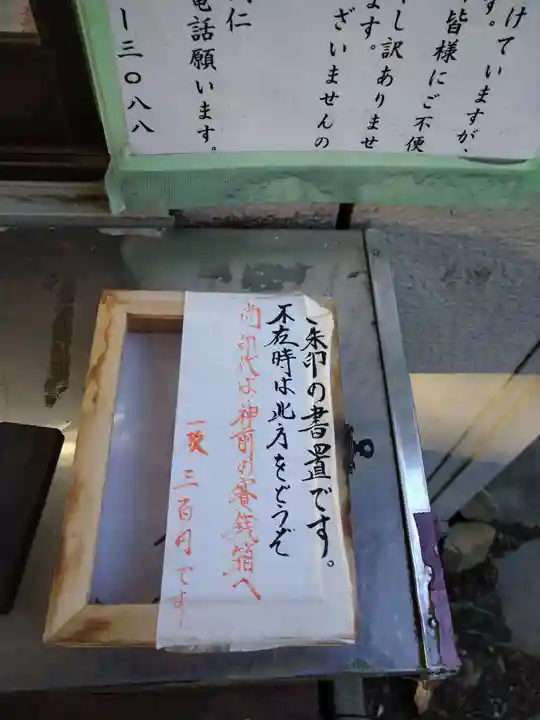 けていますが、
す。
皆様にご不便
し訳ありませ
ます。
ざいませんの
仁
電話願います。
ー三〇八八
ご朱印の書置です。
不在時は此方をどうぞ
尚印代は神前の賽銭箱へ
一枚 三百円です